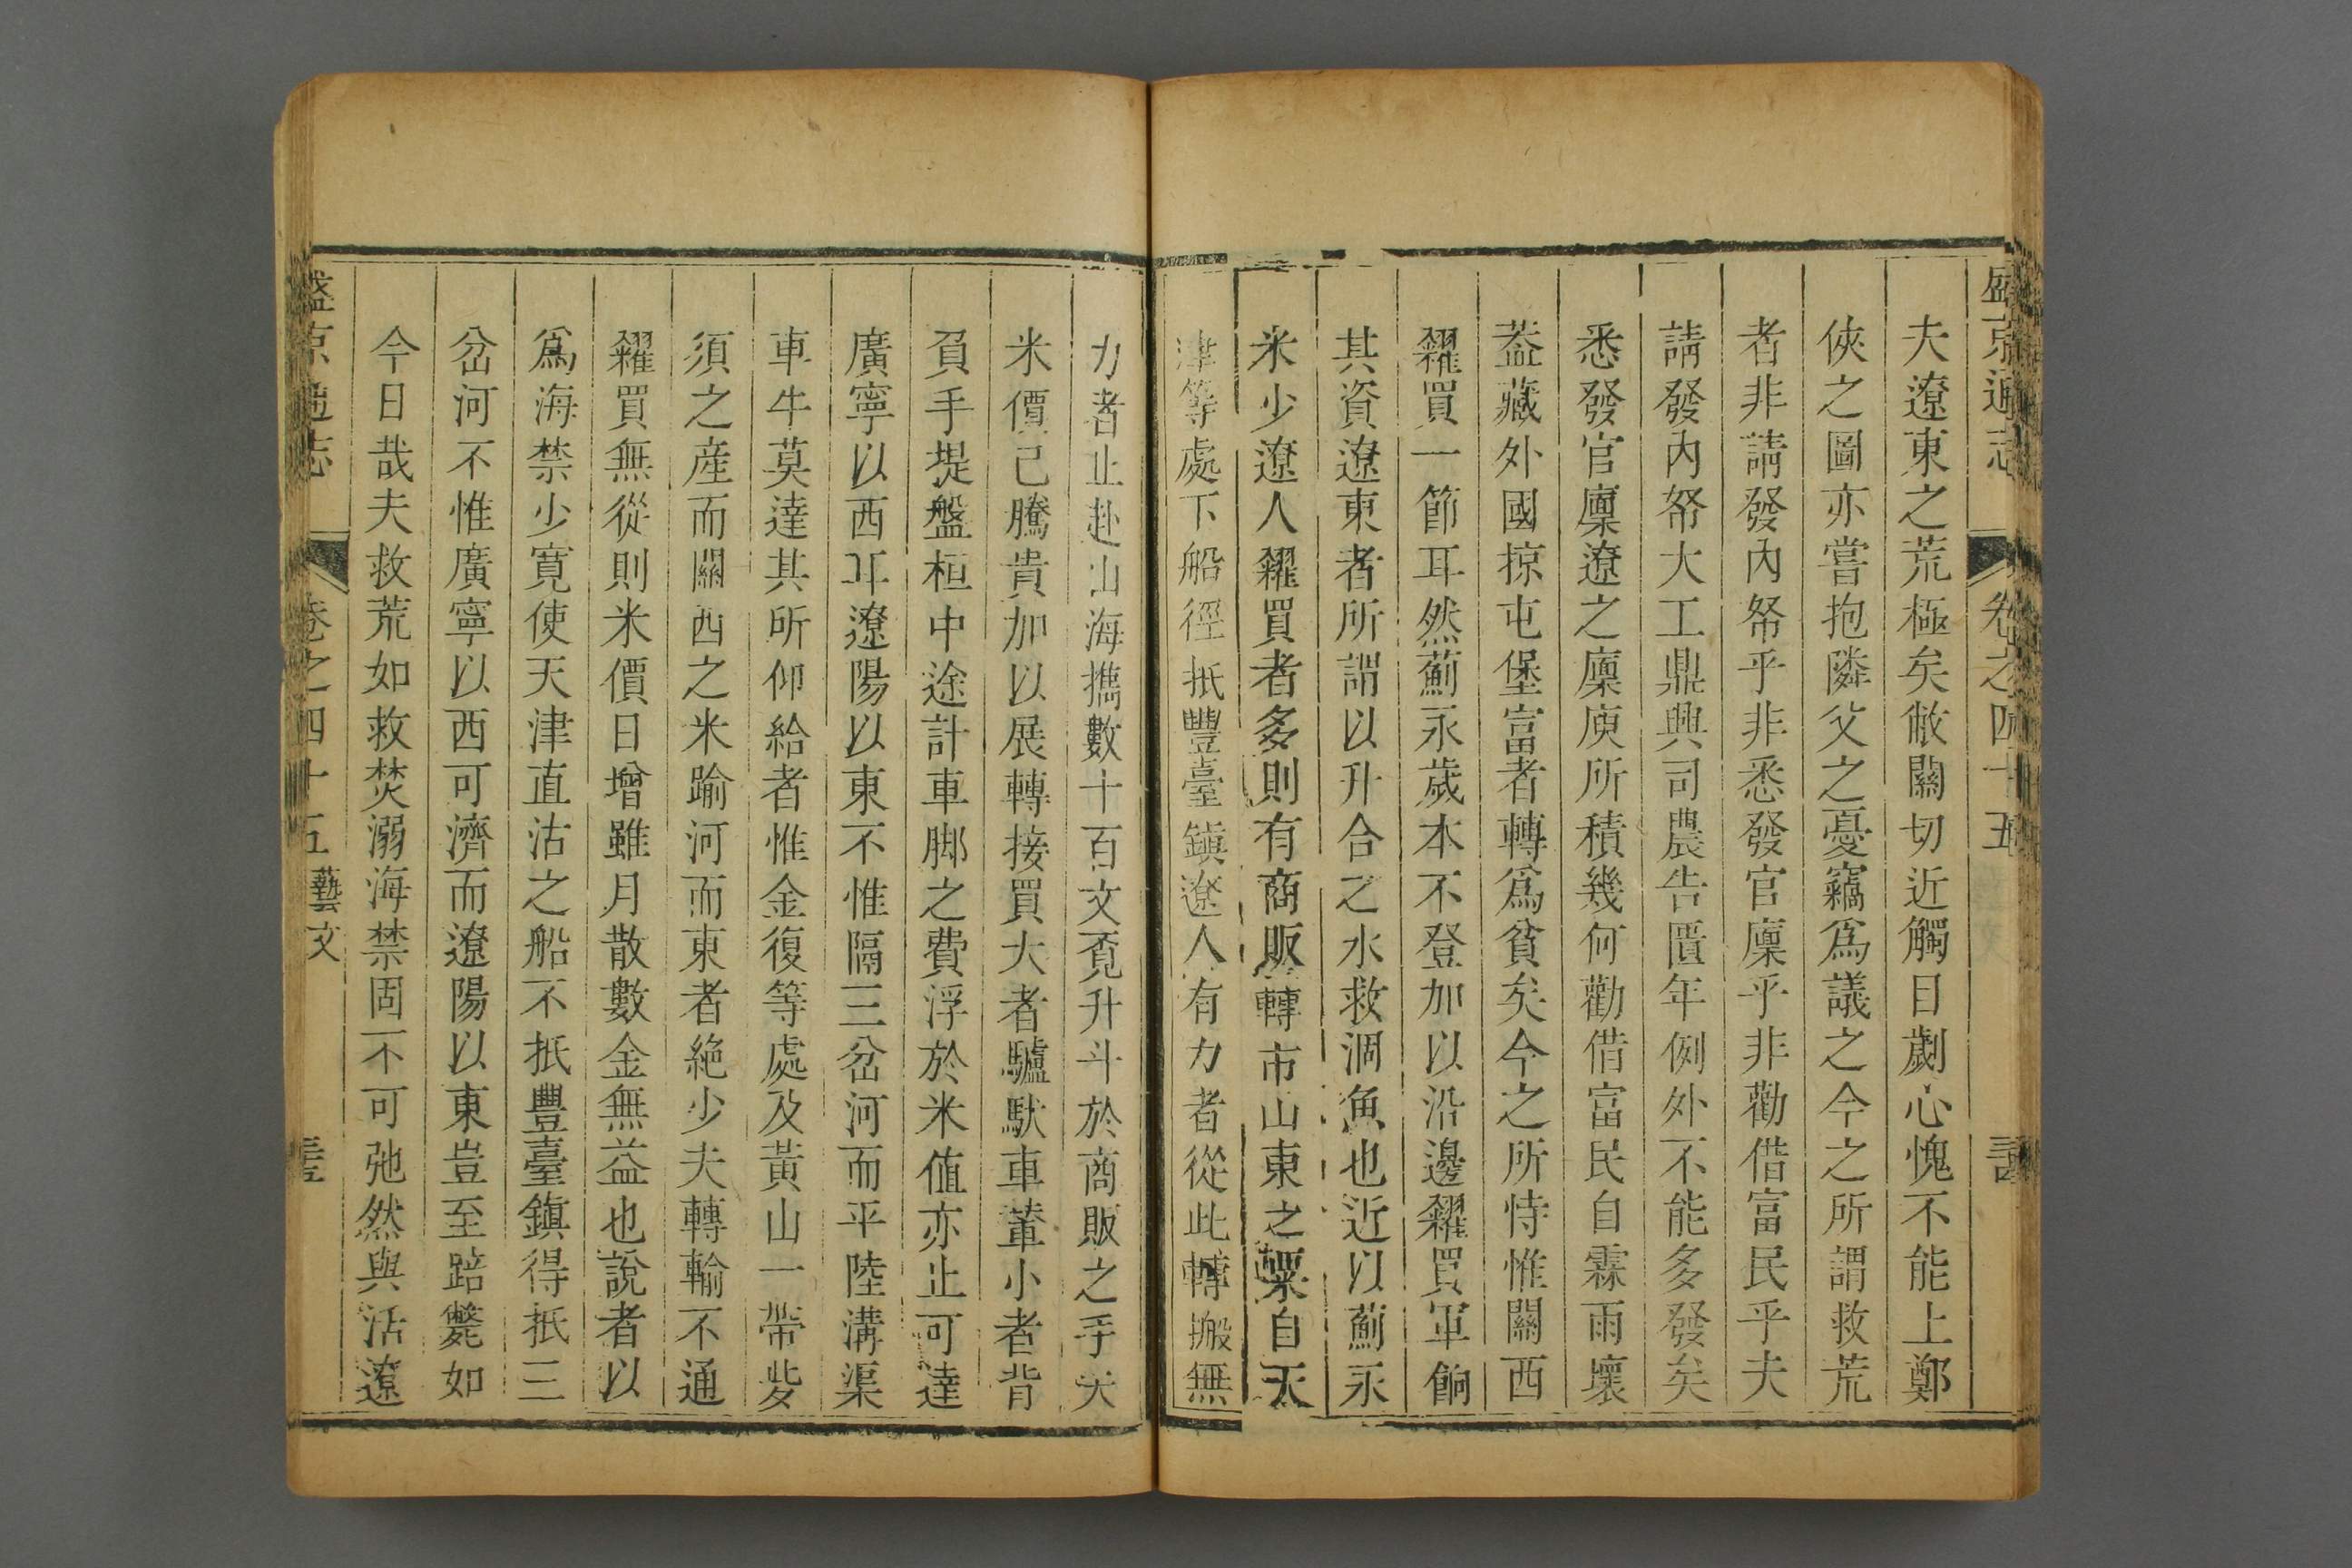 盛京通志 卷之四十五
夫遼東之荒極矣敝關切近觸目劌心愧不能上鄭
俠之圖亦嘗抱隣父之憂竊爲議之今之所謂救荒
者非請發內帑乎非悉發官廩乎非勸借富民乎夫
請發內帑大工鼎興司農告匱年例外不能多發矣
悉發官廩遼之廩庾所積幾何勸借富民自霖雨壞
葢藏外國掠屯堡富者轉爲貧矣今之所恃惟關西
糴買一節耳然薊永歲本不登加以沿邊糴買軍餉
其資遼東者所謂以升合之水救涸魚也近以薊永
米少遼人糴買者多則有商販轉市山東之粟自天
津等處下船徑抵豐臺鎭遼人有力者從此轉搬無
力者止赴山海攜數十百文覔升斗於商販之手夫
米價已騰貴加以展轉接買大者驢馱車輦小者背
負手堤盤桓中途計車脚之費浮於米值亦止可達
廣寧以西耳遼陽以東不惟隔三岔河而平陸溝渠
車牛莫達其所仰給者惟金復等處及黃山一帶些
須之産而關西之米踰河而東者絶少夫轉輸不通
糴買無從則米價日增雖月散數金無益也說者以
爲海禁少寬使天津直沽之船不抵豐臺鎭得抵三
岔河不惟廣寧以西可濟而遼陽以東豈至踣斃如
今日哉夫救荒如救焚溺海禁固不可弛然與活遼
盛京通志 卷之四十五 藝文